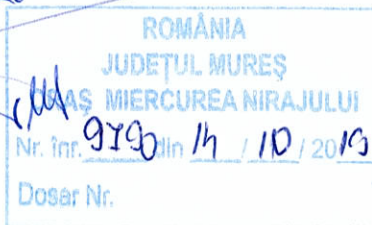 ROMÂNIA
JUDEȚUL MUREȘ
ORAȘ MIERCUREA NIRAJULUI
Nr. înr. 9790 din 14 / 10 / 2019
Dosar Nr.